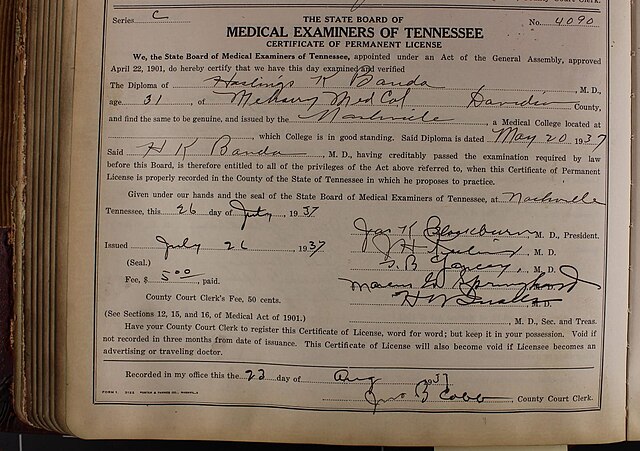 County Court Clerk.
Series C
THE STATE BOARD OF
No. 4090
MEDICAL EXAMINERS OF TENNESSEE
CERTIFICATE OF PERMANENT LICENSE
We, the State Board of Medical Examiners of Tennessee, appointed under an Act of the General Assembly, approved
April 22, 1901, do hereby certify that we have this day examined and verified
The Diploma of Hastings K Banda, M. D.,
age 31, of Meharry Med Col Davidson County,
and find the same to be genuine, and issued by the Nashville a Medical College located at
, which College is in good standing. Said Diploma is dated May 20 1937
Said H K Banda, M. D., having creditably passed the examination required by law
before this Board, is therefore entitled to all of the privileges of the Act above referred to, when this Certificate of Permanent
License is properly recorded in the County of the State of Tennessee in which he proposes to practice.
Given under our hands and the seal of the State Board of Medical Examiners of Tennessee, at Nashville
Tennessee, this 26 day of July, 1937
Jas K Blackburn, M. D., President.
Issued July 26, 1937
J H, M. D.
(Seal.)
S. B. Yancey, M. D.
Fee, $5 00, paid.
M. D.
County Court Clerk's Fee, 50 cents.
H W Qualls M.D.
(See Sections 12, 15, and 16, of Medical Act of 1901.)
, M. D., Sec. and Treas.
Have your County Court Clerk to register this Certificate of License, word for word; but keep it in your possession. Void if
not recorded in three months from date of issuance. This Certificate of License will also become void if Licensee becomes an
advertising or traveling doctor.
Recorded in my office this the 23 day of Aug 1937
FORM 1
Jno B Cobb, County Court Clerk.